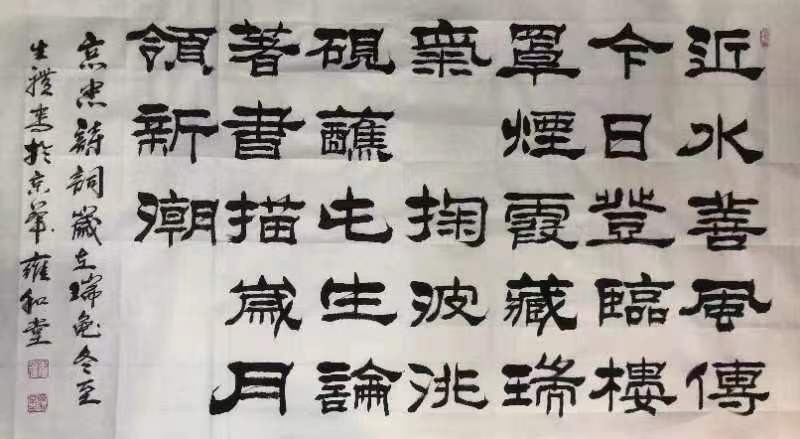 近水善風傳
今日登臨樓
罩煙霞藏瑞
氣 掬波洮
硯蘸屯生論
著書描歲月
領新潮
京忠詩詞歲在瑞兔冬至
生書於京華雍和堂